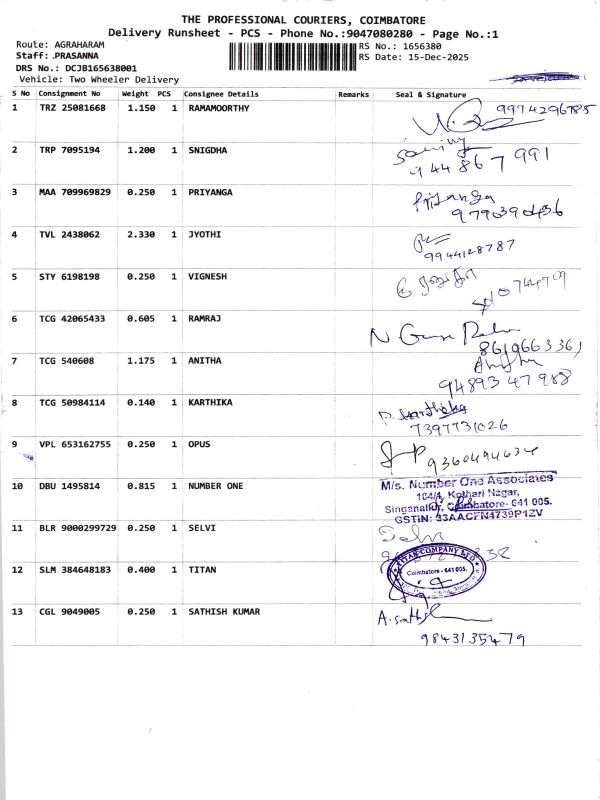 THE PROFESSIONAL COURIERS, COIMBATORE
Delivery Runsheet - PCS - Phone No.:9047080280 - Page No.:1
Route: AGRAHARAM RS No.: 1656380
Staff: PRASANNA RS Date: 15-Dec-2025
DRS No.: DCJB165638001
Vehicle: Two Wheeler Delivery
S No Consignment No Weight PCS Consignee Details Remarks Seal & Signature
1 TRZ 25081668 1.150 1 RAMAMOORTHY 9994296785
2 TRP 7095194 1.200 1 SNIGDHA
944 867 991
3 MAA 709969829 0.250 1 PRIYANGA Priyanga
9790390436
4 TVL 2438062 2.330 1 JYOTHI
9944128787
5 STY 6198198 0.250 1 VIGNESH
6 TCG 42065433 0.605 1 RAMRAJ
8610663361
7 TCG 540608 1.175 1 ANITHA Anitha
94893 47988
8 TCG 50984114 0.140 1 KARTHIKA P. Karthika
7397731026
9 VPL 653162755 0.250 1 OPUS
9360494634
10 DBU 1495814 0.815 1 NUMBER ONE M/s. Number One Associates
184/4, Kothari Nagar,
Singanallur, Coimbatore- 641 005.
GSTIN: 33AACFN4739P1ZV
11 BLR 9000299729 0.250 1 SELVI Selvi
12 SLM 384648183 0.400 1 TITAN TITAN COMPANY LTD
Coimbatore - 641 005.
13 CGL 9049005 0.250 1 SATHISH KUMAR A. Sathish
9843135479